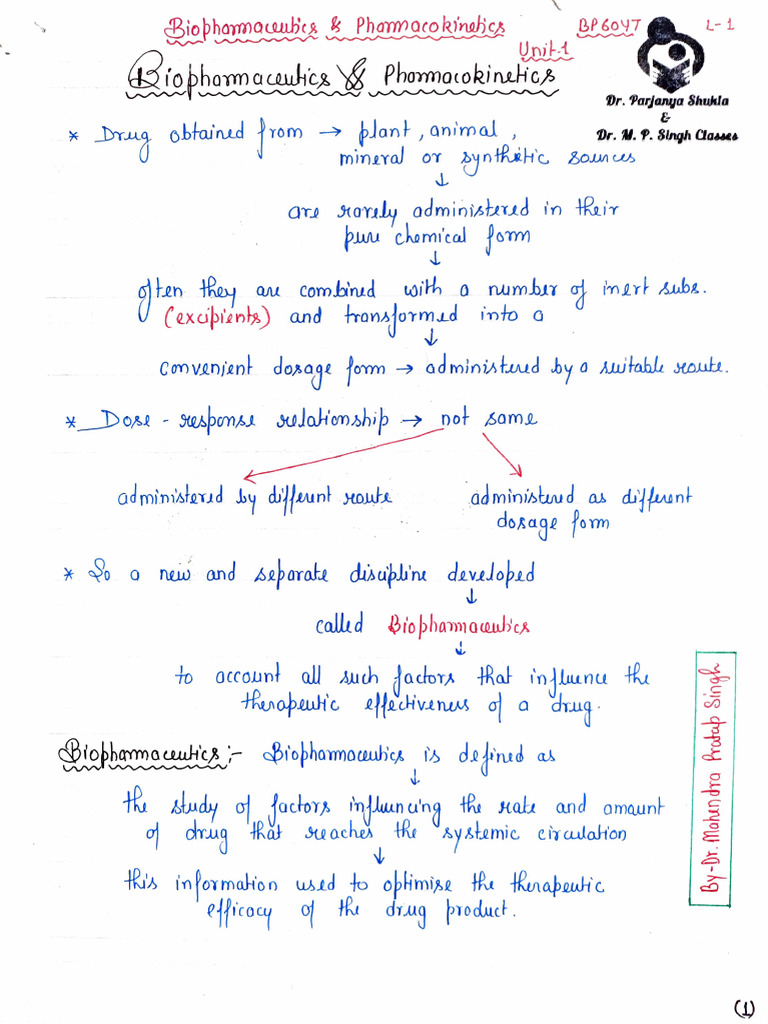 Biopharmaceutics & Pharmacokinetics BP604T L-1
Unit-1
Biopharmaceutics & Pharmacokinetics
Dr. Parjanya Shukla
&
Dr. M. P. Singh Classes
* Drug obtained from → plant, animal,
mineral or synthetic sources
↓
are rarely administered in their
pure chemical form
↓
often they are combined with a number of inert subs.
(excipients) and transformed into a
↓
convenient dosage form → administered by a suitable route.
* Dose - response relationship → not same
administered by different route administered as different
dosage form
* So a new and separate discipline developed
↓
called Biopharmaceutics
↓
to account all such factors that influence the
therapeutic effectiveness of a drug.
Biopharmaceutics :- Biopharmaceutics is defined as
↓
the study of factors influencing the rate and amount
of drug that reaches the systemic circulation
↓
this information used to optimise the therapeutic
efficacy of the drug product.
By-Dr. Mahendra Pratap Singh
(1)